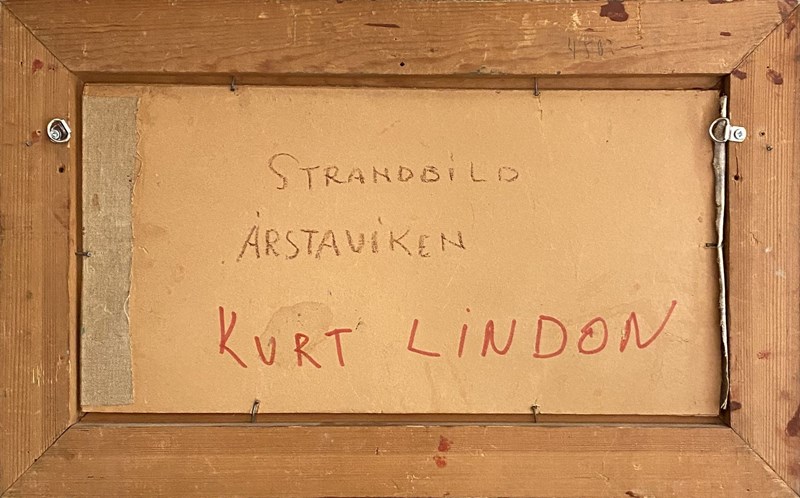 STRANDBILD
ÅRSTAVIKEN
KURT LINDON